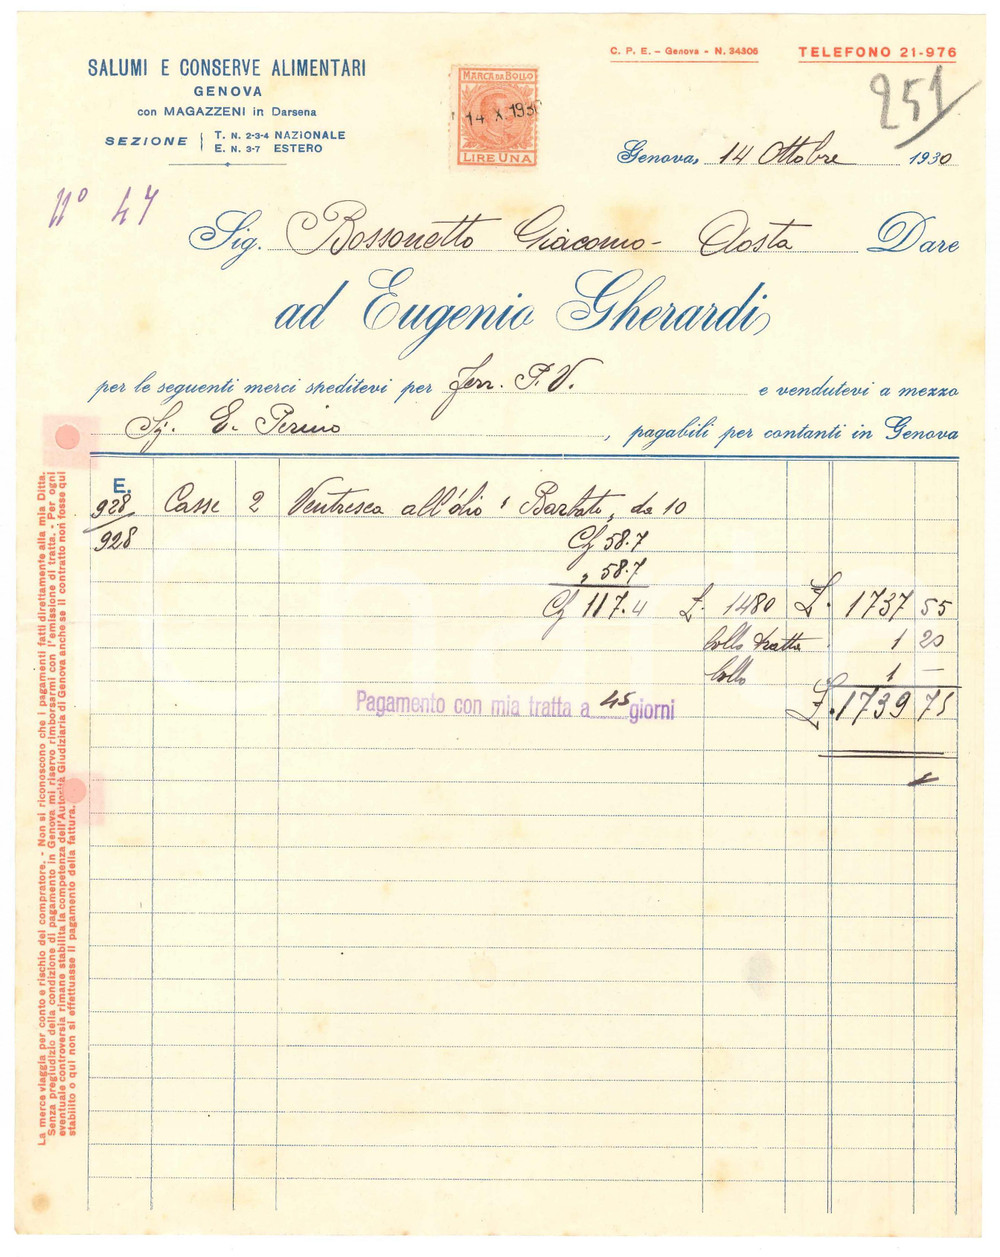 C. P. E. – Genova - N. 34306
TELEFONO 21-976
SALUMI E CONSERVE ALIMENTARI
GENOVA
con MAGAZZENI in Darsena
SEZIONE T. N. 2-3-4 NAZIONALE
E. N. 3-7 ESTERO
MARCA DA BOLLO
14 X 1930
LIRE UNA
251
Genova, 14 Ottobre 1930
N° 47
Sig. Bossonetto Giacomo - Aosta Dare
ad Eugenio Gherardi
per le seguenti merci speditevi per ferr. P. V. e vendutevi a mezzo
Sg. E. Perino, pagabili per contanti in Genova
E.
928 Casse 2 Ventresca all'olio "Barbato, da 10
928 Cg 58.7
" 58.7
Cg 117.4 £. 1480 £. 1737 55
bollo tratta 1 20
bollo 1 —
£. 1739 75
Pagamento con mia tratta a 45 giorni
La merce viaggia per conto e rischio del compratore. - Non si riconoscono che i pagamenti fatti direttamente alla mia Ditta.
Senza pregiudizio della condizione di pagamento in Genova mi riservo rimborsarmi con l'emissione di tratta. - Per ogni
eventuale controversia rimane stabilita la competenza dell'Autorità Giudiziaria di Genova anche se il contratto non fosse qui
stabilito o qui non si effettuasse il pagamento della fattura.